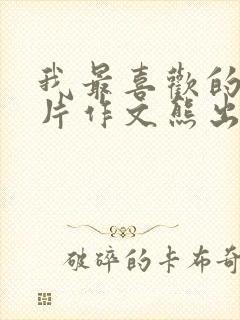 我最喜歡的
片作文熊出
破碎的卡布奇